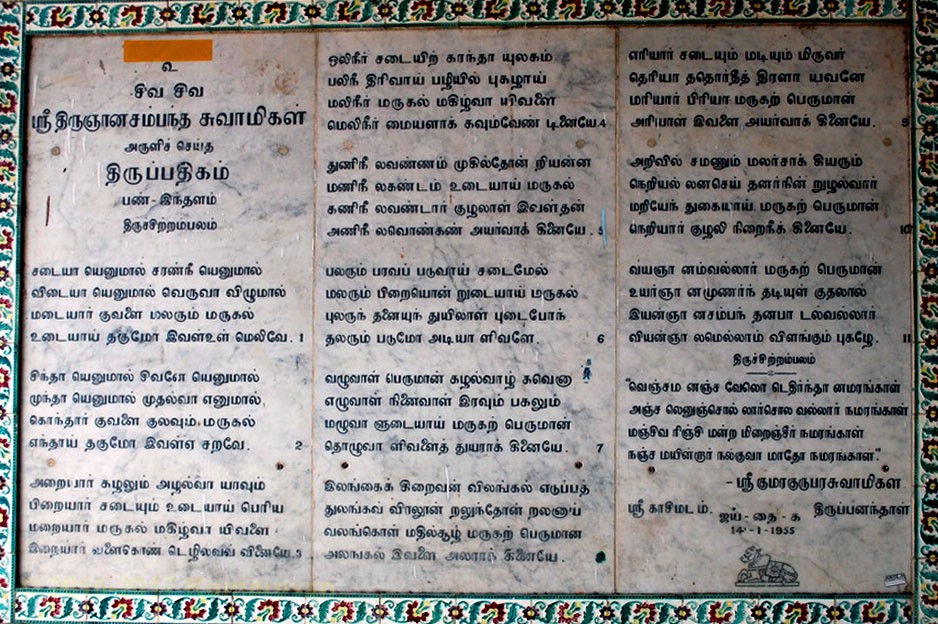 உ
சிவ சிவ
ஸ்ரீ திருஞானசம்பந்த சுவாமிகள்
அருளிச் செய்த
திருப்பதிகம்
பண்-இந்தளம்
திருச்சிற்றம்பலம்
சடையா யெனுமால் சரண்நீ யெனுமால்
விடையா யெனுமால் வெருவா விழுமால்
மடையார் குவளை மலரும் மருகல்
உடையாய் தகுமோ இவள்உள் மெலிவே. 1
சிந்தா யெனுமால் சிவனே யெனுமால்
முந்தா யெனுமால் முதல்வா எனுமால்
கொந்தார் குவளை குலவும் மருகல்
எந்தாய் தகுமோ இவள்ஏ சறவே. 2
அறையார் கழலும் அழல்வா யரவும்
பிறையார் சடையும் உடையாய் பெரிய
மறையார் மருகல் மகிழ்வா யிவளை
இறையார் வளைகொண் டெழிலவவ் வினையே. 3
ஒலிநீர் சடையிற் கரந்தா யுலகம்
பலிநீ திரிவாய் பழியில் புகழாய்
மலிநீர் மருகல் மகிழ்வா யிவளை
மெலிநீர் மையளாக் கவும்வேண் டினையே. 4
துணிநீ லவண்ணம் முகில்தோன் றியன்ன
மணிநீ லகண்டம் உடையாய் மருகல்
கணிநீ லவண்டார் குழலாள் இவள்தன்
அணிநீ லவொண்கண் அயர்வாக் கினையே. 5
பலரும் பரவப் படுவாய் சடைமேல்
மலரும் பிறையொன் றுடையாய் மருகல்
புலருந் தனையுந் துயிலாள் புடைபோந்
தலரும் படுமோ அடியா ளிவளே. 6
வழுவாள் பெருமான் கழல்வாழ் கவெனா
எழுவாள் நினைவாள் இரவும் பகலும்
மழுவா ளுடையாய் மருகற் பெருமான்
தொழுவா ளிவளைத் துயராக் கினையே. 7
இலங்கைக் கிறைவன் விலங்கல் எடுப்பத்
துலங்கவ் விரலூன் றலுந்தோன் றலனாய்
வலங்கொள் மதில்சூழ் மருகற் பெருமான்
அலங்கல் இவளை அலராக் கினையே.
எரியார் சடையும் மடியும் மிருவர்
தெரியா ததொர்தீத் திரளா யவனே
மரியார் பிரியா மருகற் பெருமான்
அரியாள் இவளை அயர்வாக் கினையே. 9
அறிவில் சமணும் மலர்சாக் கியரும்
நெறியல் லனசெய் தனர்நின் றுழல்வார்
மறியேந் துகையாய் மருகற் பெருமான்
நெறியார் குழலி நிறைநீக் கினையே. 10
வயஞா னம்வல்லார் மருகற் பெருமான்
உயர்ஞா னமுணர்ந் தடியுள் குதலால்
இயன்ஞா னசம்பந் தனபா டல்வல்லார்
வியன்ஞா லமெல்லாம் விளங்கும் புகழே. 11
திருச்சிற்றம்பலம்
"வெஞ்சம னஞ்ச வேலொ டெதிர்ந்தா னமரங்காள்
அஞ்ச லெனுஞ்சொல் லார்சொல வல்லார் நமரங்காள்
மஞ்சிவ ரிஞ்சி மன்ற மிறைஞ்சீர் நமரங்காள்
நஞ்ச மயின்றார் நல்குவர் மாதோ நமரங்காள்."
- ஸ்ரீ குமரகுருபரசுவாமிகள்
ஸ்ரீ காசிமடம். திருப்பனந்தாள்
ஜய-தை-க
14-1-1955